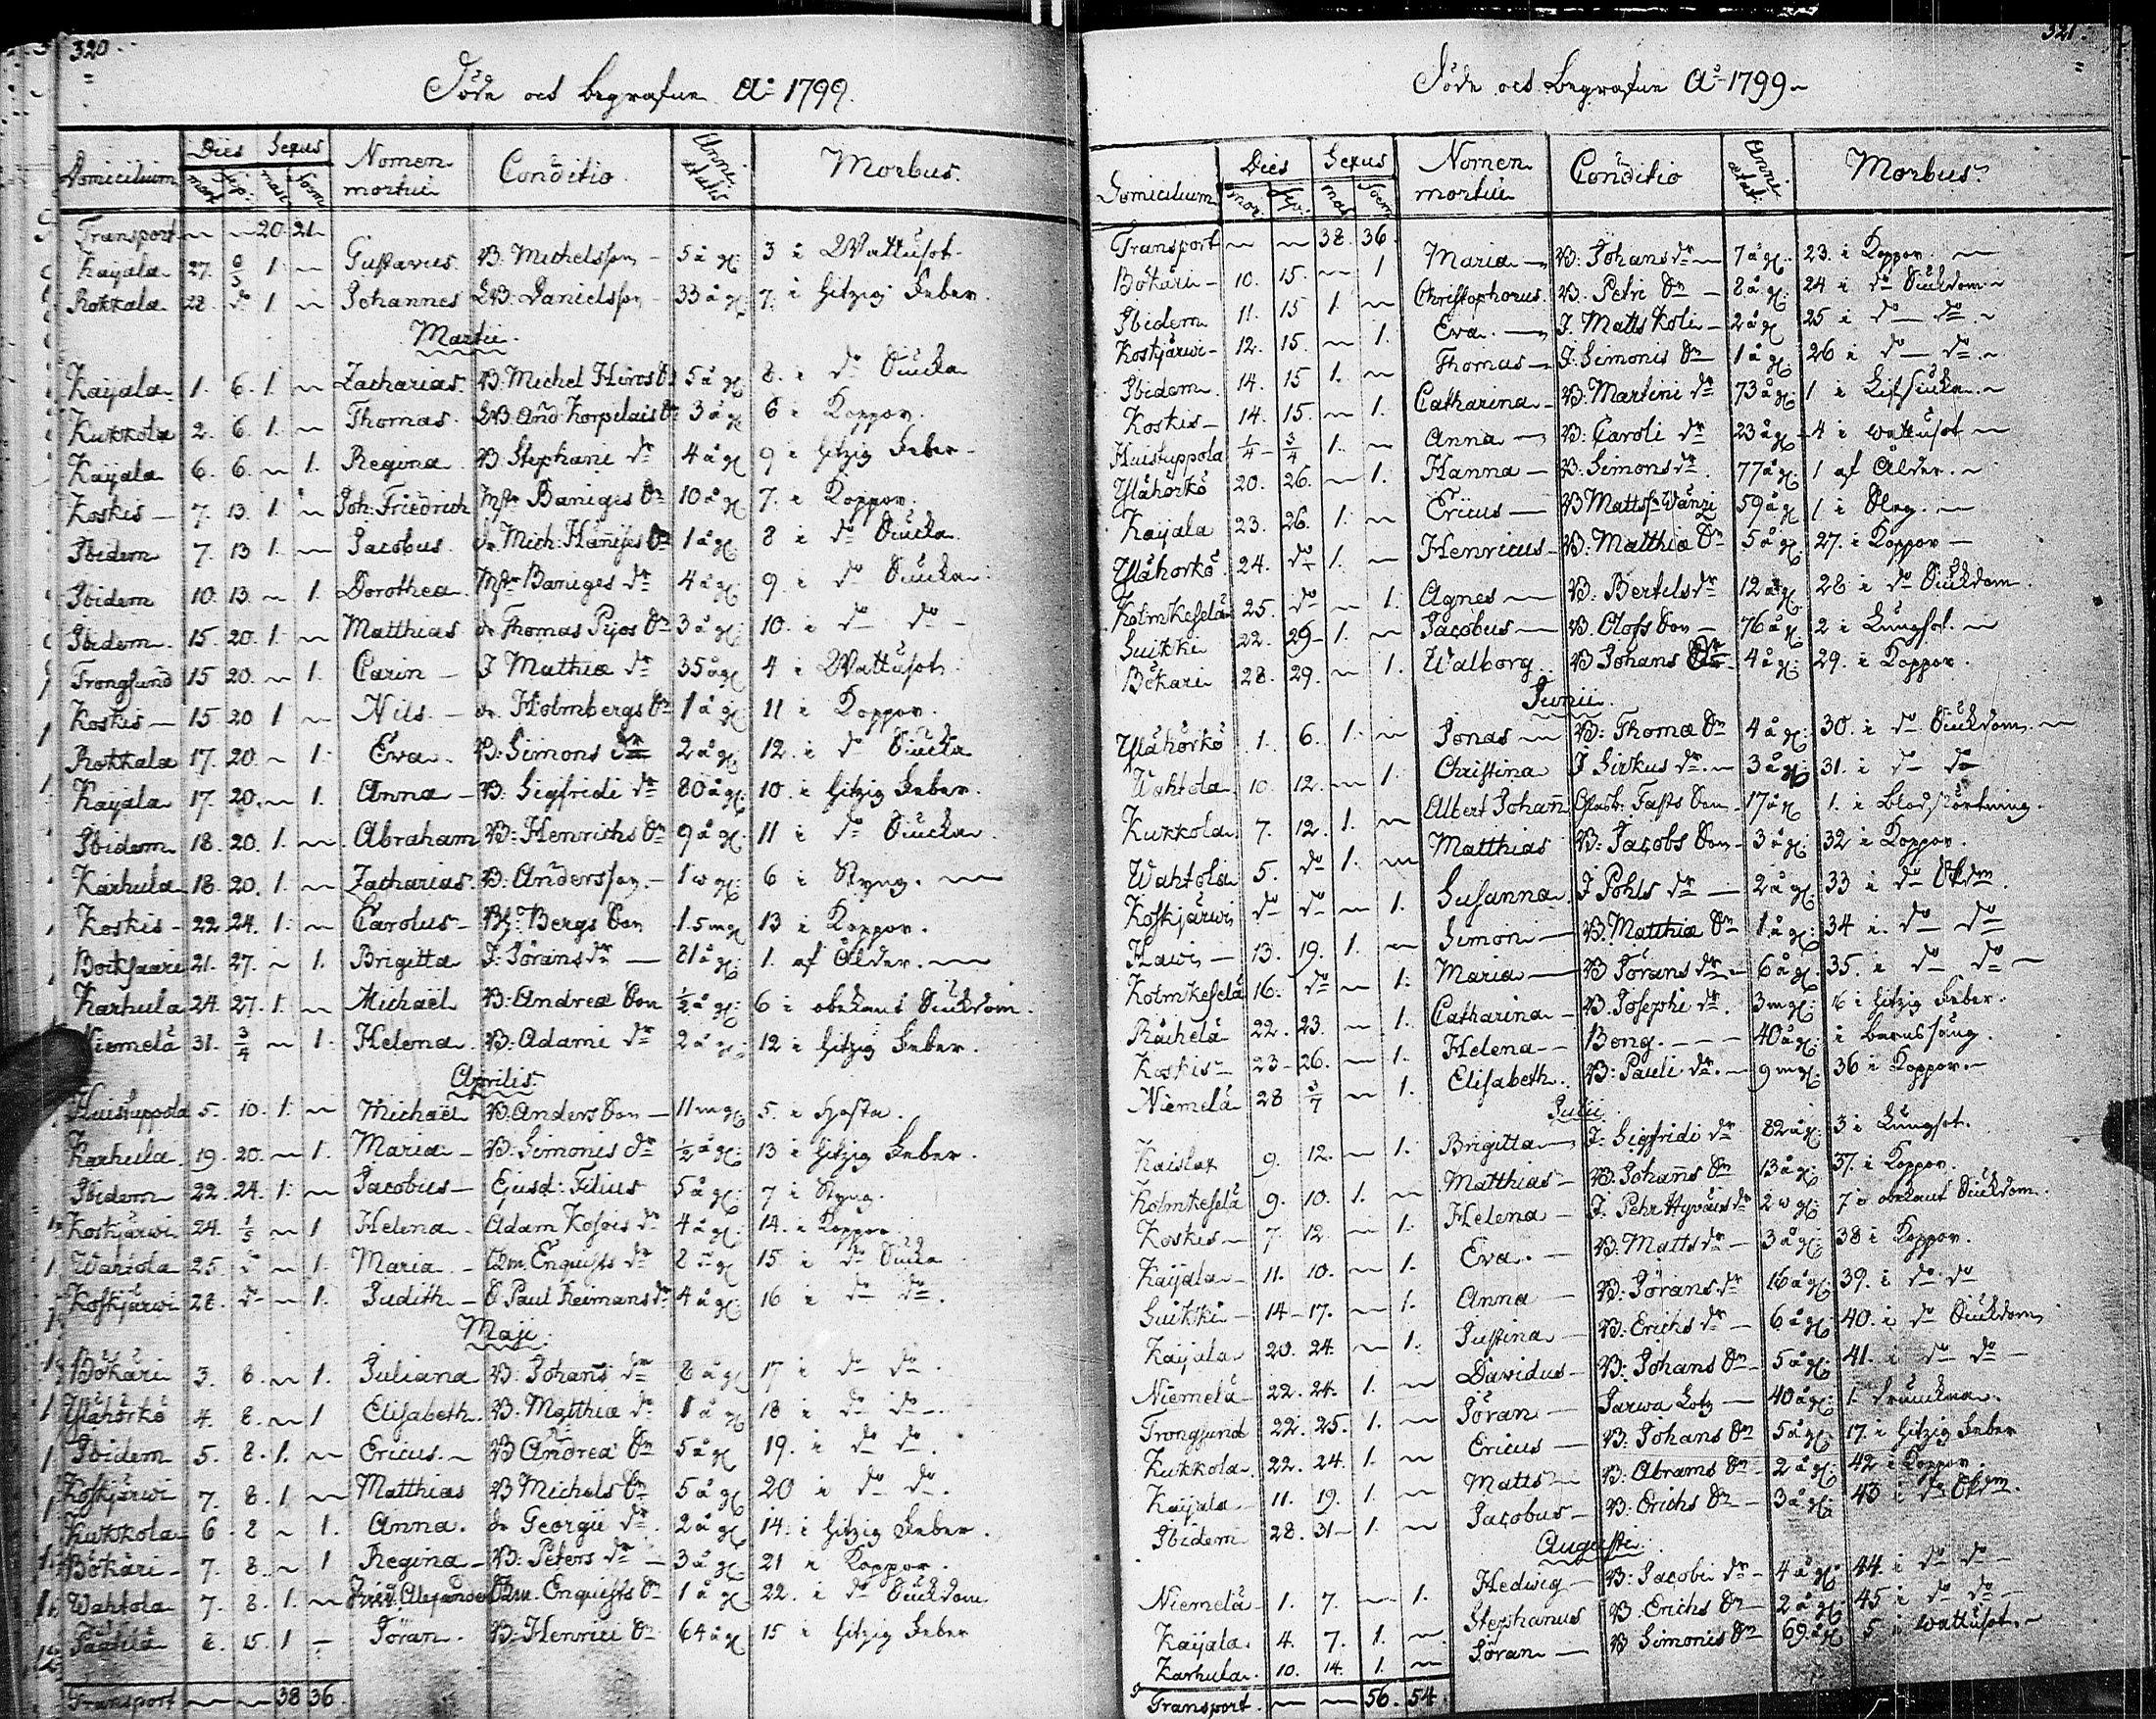 320.
Döde och begrafne Aº 1799.
Domicilium Dies Sexus Nomen mortui Conditio Anni ætatis Morbus.
mort. Sep. masc. Foem.
Transport — — 20. 21.
Kaijala 27. 6/3 1. — Gustavus. B. Michelsson — 5 å gl. 3 i Wattusot.
Rokkala 28. do 1. — Johannes LB. Danielsson — 33 å gl. 7. i hitzig feber.
Martii.
Kaijala 1. 6. 1. — Zacharias. B. Michel Hirvos Sn 5 å gl. 8. i do Siucka
Kukkola 2. 6. 1. — Thomas. LB. And. Korpelais Sn 3 å gl. 6 i Koppor.
Kaijala 6. 6. — 1. Regina B. Stephani dr 4 å gl. 9 i hitzig feber —
Koskis — 7. 13. 1. — Joh. Friedrich Mstr Baniges Sn 10 å gl. 7. i Koppor.
Ibidem 7. 13 1. — Jacobus. dr Mich. Hänises Sn 1 å gl. 8 i do Siucka
Ibidem 10. 13. — 1. Dorothea. Mstr Baniges dr 4 å gl. 9 i do Siucka
Ibidem. 15. 20. 1. — Matthias dr Thomas Pijos Sn 3 å gl. 10. i do do —
Trongsund 15 20. — 1. Carin — I Mathiæ dr 35 å gl. 4 i Wattusot
Koskis — 15. 20 1 — Nils. — dr Holmbergs Sn 1 å gl. 11 i Koppor.
Rokkala 17. 20. — 1. Eva. B. Simons dr 2 å gl. 12. i do Siucka
Kaijala 17. 20. — 1. Anna — B. Sigfridi dr 80 å gl. 10. i hitzig feber.
Ibidem 18. 20. 1. — Abraham B. Henrichs Sn 9 å gl. 11 i do Siucka
Karhula 18. 20. 1. — Zacharias. B. Andersson. — 1 w gl. 6 i Styng. —
Koskis — 22. 24. 1. — Carolus — Bergs Son 1.5 m gl. 13 i Koppor.
Bocksaari 21. 27. — 1. Brigitta I. Jörans dr — 81 å gl. 1. af Ålder. —
Karhula 24. 27. 1. — Michaël B. Andreæ Son ½ å gl. 6 i obekant Siukdom.
Niemelä 31. 3/4 — 1. Helena. B. Adami dr 2 å gl. 12 i hitzig feber.
Aprilis.
Huistuppola 5. 10. 1. — Michaël B. Anders Son — 11 m gl. 5. i Hosta.
Karhula. 19. 20. — 1. Maria — B. Simonis dr ½ å gl. 13 i hitzig feber.
Ibidem 22. 24. 1. — Jacobus — Ejusd: Filius 5 å gl. 7 i Styng.
Koskjärwi 24. 1/5 — 1 Helena — Adam Kosois dr 4 å gl. 14. i Koppor
Wahtola 25. do — 1. Maria. — Enquists dr 8 å gl. 15. i do Siucka
Koskjärwi 28. do — 1. Judith — Paul Keimans dr 4 å gl. 16 i do do.
Maji.
Bökäri 3. 8. — 1. Juliana B. Johans dr 8 å gl. 17 i do do
Ylähörkö 4. 8. — 1 Elisabeth. B. Matthiæ dr 1 å gl. 18 i do do —
Ibidem 5. 8. 1. — Ericus. — B Andreæ Sn 5 å gl. 19. i do do.
Koskjärwi 7. 8. 1. — Matthias B Michels Sn 5 å gl. 20 i do do.
Kukkola 6. 8 — 1. Anna. dr Georgii dr 2 å gl. 14. i hitzig feber.
Bökäri — 7. 8. — 1 Regina — B. Peters dr — 3 å gl. 21 i Koppor.
Wahtola 7. 8. 1. — Fried. Alexander Enquists Sn 1 å gl. 22. i do Siukdom
8. 15. 1 — Jöran. B. Henrici Sn 64 å gl. 15 i hitzig feber
Transport — — 38 36.
321.
Döde och begrafne Aº 1799 —
Domicilium Dies Sexus Nomen mortui Conditio Anni ætat. Morbus
mor. Sep. mas. Foem.
Transport — — 38. 36.
Bökäri — 10. 15. — 1 Maria — B: Johans dr — 7 å gl. 23. i Koppor —
Ibidem 11. 15 1. — Christophorus. B. Petri Sn — 8 å gl. 24 i do Siukdom. —
Koskjärwi — 12. 15. — 1. Eva. — I. Matts Koli — 2 å gl. 25 i do — do —
Ibidem. 14. 15 1. — Thomas — I. Simonis Sn — 1 å gl. 26 i do — do —
Koskis — 14. 15. — 1. Catharina — B: Martini dr 73 å gl. 1 i —
Huistuppola 1/4 — 3/4 1. — Anna — B: Caroli dr 23 å gl. 4 i wattusot —
Ylähörkö 20. 26. — 1. Hanna — B: Simons dr 77 å gl. 1 af Ålder. —
Kaijala 23. 26. 1. — Ericus — B Mattss. Wänzi 59 å gl. 1 i —
Ylähörkö. 24. do 1. — Henricus — B. Matthiæ Sn 5 å gl. 27. i Koppor —
Kolmikeselä 25. do — 1. Agnes — B: Bertels dr 12 å gl. 28 i do Siukdom
Suikki 22. 29 — 1. — Jacobus — B. Olofs Son — 76 å gl. 2 i Lungsot —
Bökäri 28. 29. — 1. Walborg. B Johans dr 4 å gl. 29. i Koppor.
Junii.
Ylähörkö 1. 6. 1. — Jonas — B: Thomæ Sn 4 å gl. 30. i do Siukdom —
Wahtola 10. 12. — 1. Christina I Sirkus dr — 3 å gl. 31. i do do
Kukkola. 7. 12. 1. — Albert Johann Fasts Son — 17 å gl. 1. i Blodstörtning.
Wahtola 5. do 1. — Matthias B: Jacobs Son — 3 å gl. 32 i Koppor.
Koskjärwi do do — 1. Susanna. I Pohls dr — 2 å gl. 33 i do Skdm.
Kawi — 13. 19. 1. — Simon — B. Matthiæ Sn 1 å gl. 34 i do do
Kolmikeselä 16. do — 1. Maria — B Jörans dr — 6 å gl. 35. i do do —
Räihelä 22. 23. — 1. Catharina — B. Josephi dr. 3 m gl. 16 i hitzig feber.
Koskis — 23 — 26. — 1. Helena — Beng. — — — 40 å gl. i barnssäng.
Niemelä 28 3/7 — 1. Elisabeth. B: Pauli dr. — 9 m gl. 36 i Koppor. —
Julii
Kaislax 9. 12. — 1. Brigitta — I: Sigfridi dr 82 å gl. 3 i Lungsot.
Kolmikeselä 9. 10. 1. — Matthias — B. Johans Sn 13 å gl. 37. i Koppor.
Koskis — 7. 12. — 1. Helena — I. Pehr Hyväis dr 2 w gl. 7 i obekant Siukdom.
Kaijala — 11. 10. — 1. Eva. — B: Matts dr — 3 å gl. 38 i Koppor.
Suikki — 14 — 17. — 1. Anna — B: Jörans dr 16 å gl. 39. i do do
Kaijala 20. 24. — 1. Justina — B. Erichs dr — 6 å gl. 40. i do Siukdom
Niemelä 22. 24. 1. — Davidus — B: Johans Sn — 5 å gl. 41. i do do —
Trongsund 22. 25. 1. — Jöran — Jarwa Lotz — 40 å gl. 1. drunckna.
Kukkola. 22. 24. 1. — Ericus — B: Johans Sn 5 å gl. 17. i hitzig feber
Kaijala 11. 19. 1. — Matts — B: Abrams Sn — 2 å gl. 42 i Koppor.
Ibidem 28. 31 — 1. — Jacobus — B: Erichs Sn — 3 å gl. 43 i do Skdm.
Augusti.
Niemelä — 1. 7. — 1. Hedwig — B: Jacobi dr — 4 å gl. 44. i do do —
Kaijala. 4. 7. 1. — Stephanus B. Erichs Sn — 2 å gl. 45 i do do —
Karhula. 10. 14. 1. — Jöran — B Simonis Sn 69 å gl. 5 i wattusot. —
Transport. — — 56. 54.